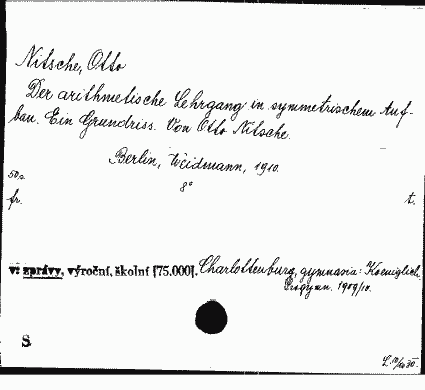 Nitsche, Otto
Der arithmetische Lehrgang in symmetrischem Auf-
bau. Ein Grundriss. Von Otto Nitsche.
Berlin, Weidmann, 1910.
8°
fr. t.
v: zprávy, výroční, školní [75.000], Charlottenburg, gymnasia: Koeniglich.
Progymn. 1909/10.
S.